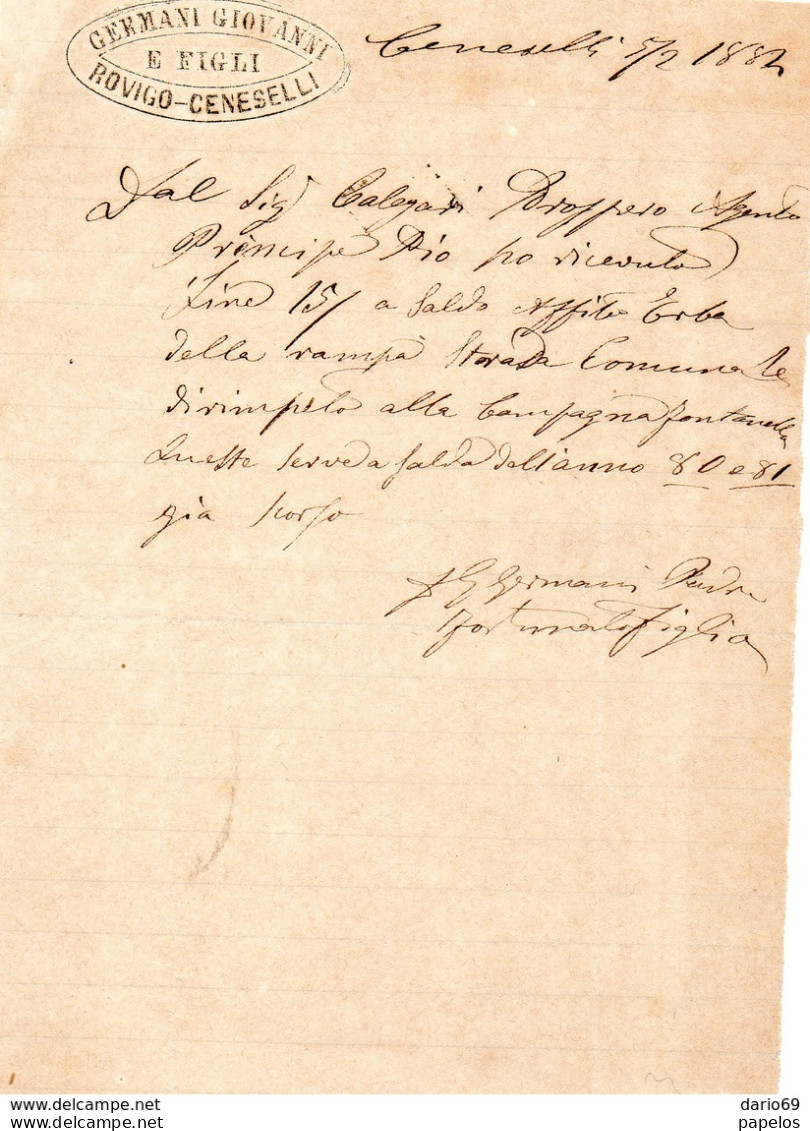 GERMANI GIOVANNI
E FIGLI
ROVIGO-CENESELLI
Ceneselli 5/2 1882
Dal Sig Calegari Prospero Agente
Principe Pio ho ricevuto
Lire 15/ a Saldo Affito Erba
della rampa Strada Comunale
dirimpeto alla Campagna Fontanella
Queste serve a saldo dell anno 80 e 81
gia scorso
Germani Padre
Fortunato Figlio
www.delcampe.net
www.delcampe.net
dario69
papelos